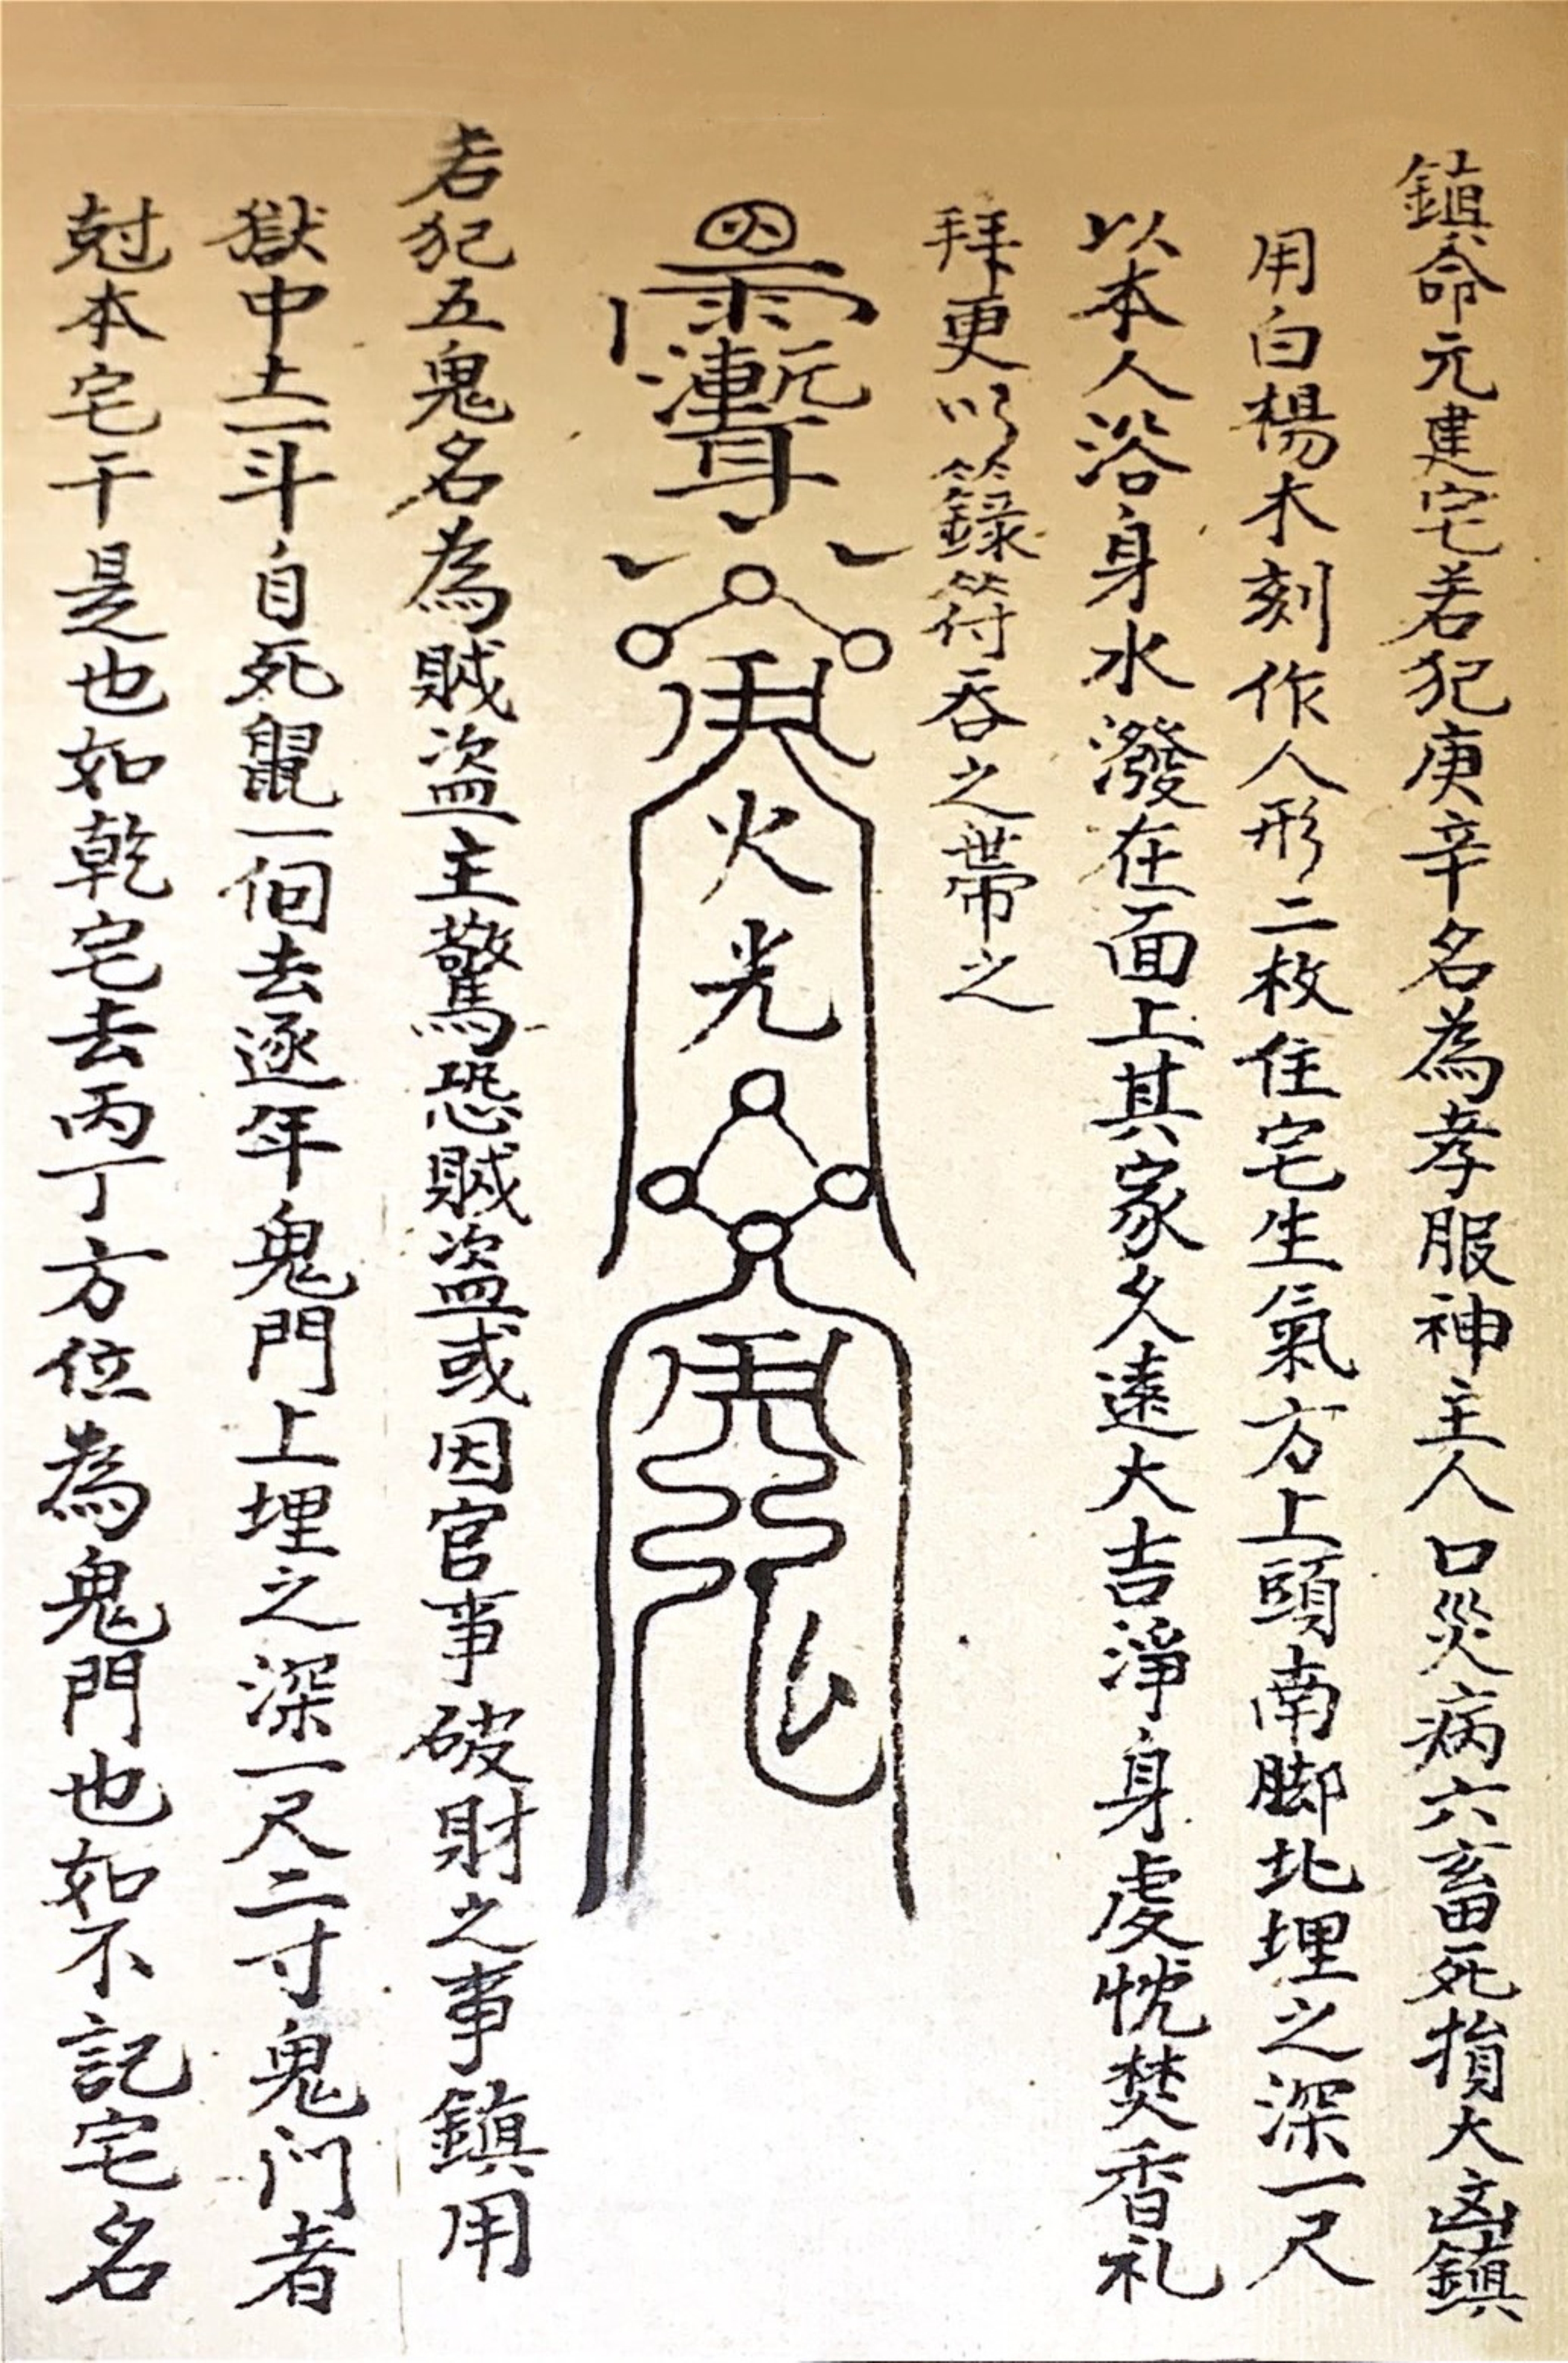 鎮命元建宅若犯庚辛名為孝服神主人口災病六畜死損大凶鎮
用白楊木刻作人形二枚住宅生氣方上頭南脚北埋之深一尺
以本人浴身水潑在面上其家久遠大吉淨身虔忱焚香礼
拜更以籙符吞之帶之
火光
若犯五鬼名為賊盜主驚恐賊盜或因官事破財之事鎮用
獄中土一斗自死鼠一個去逐年鬼門上埋之深一尺二寸鬼门者
尅本宅干是也如乾宅去丙丁方位為鬼門也如不記宅名